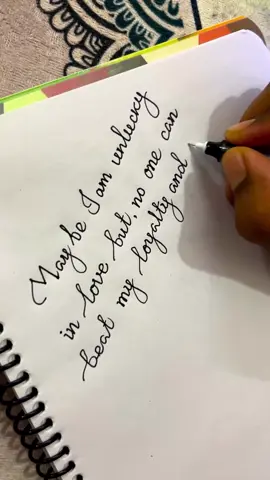 May be I am unlucky
in love but, no one can
beat my loyalty and